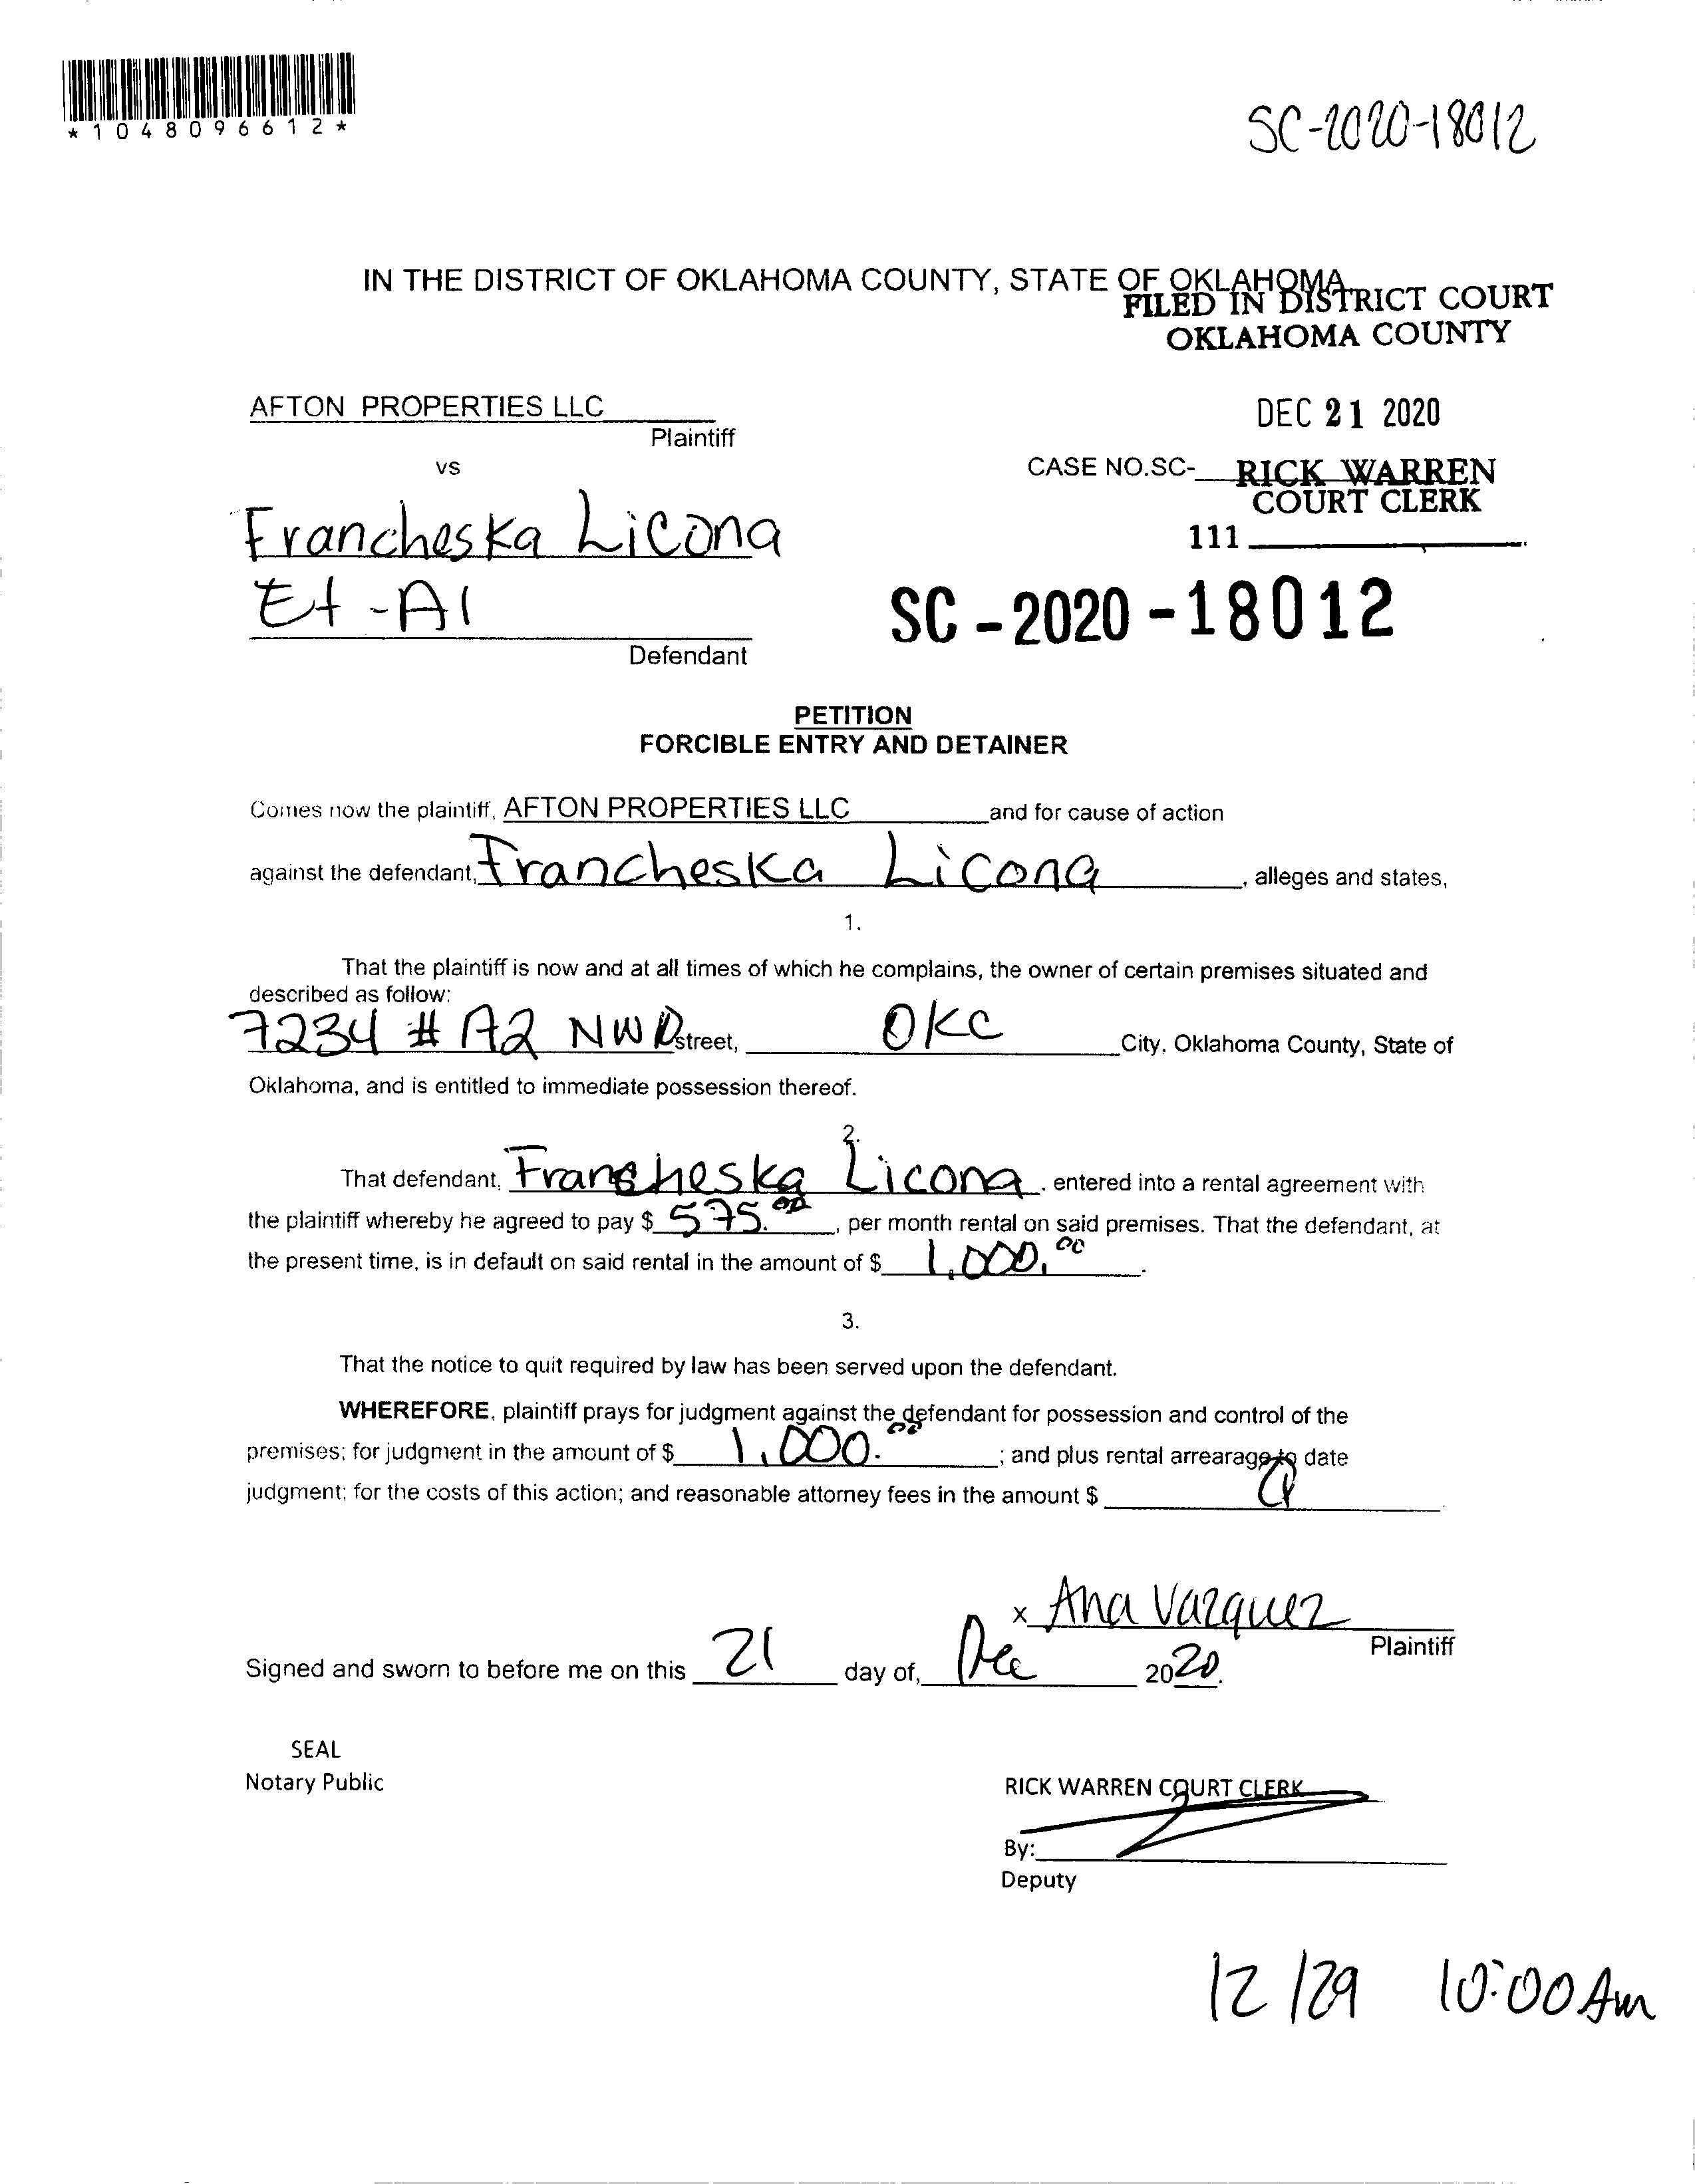 *1048096612*
SC-2020-18012
IN THE DISTRICT OF OKLAHOMA COUNTY, STATE OF OKLAHOMA
FILED IN DISTRICT COURT
OKLAHOMA COUNTY
AFTON PROPERTIES LLC
Plaintiff
DEC 21 2020
vs
CASE NO.SC-
RICK WARREN
COURT CLERK
111
Francheska Licona
Et-Al
Defendant
SC-2020-18012
PETITION
FORCIBLE ENTRY AND DETAINER
Comes now the plaintiff, AFTON PROPERTIES LLC and for cause of action
against the defendant, Francheska Licona, alleges and states,
1.
That the plaintiff is now and at all times of which he complains, the owner of certain premises situated and
described as follow:
7234 # A2 NW street, OKC City, Oklahoma County, State of
Oklahoma, and is entitled to immediate possession thereof.
2.
That defendant, Francheska Licona, entered into a rental agreement with
the plaintiff whereby he agreed to pay $ 575.00, per month rental on said premises. That the defendant, at
the present time, is in default on said rental in the amount of $ 1,000.00.
3.
That the notice to quit required by law has been served upon the defendant.
WHEREFORE, plaintiff prays for judgment against the defendant for possession and control of the
premises; for judgment in the amount of $ 1,000.00; and plus rental arrearage to date
judgment; for the costs of this action; and reasonable attorney fees in the amount $
x Ana Vazquez
Plaintiff
Signed and sworn to before me on this 21 day of, Dec 2020.
SEAL
Notary Public
RICK WARREN COURT CLERK
By:
Deputy
12/29 10:00 Am